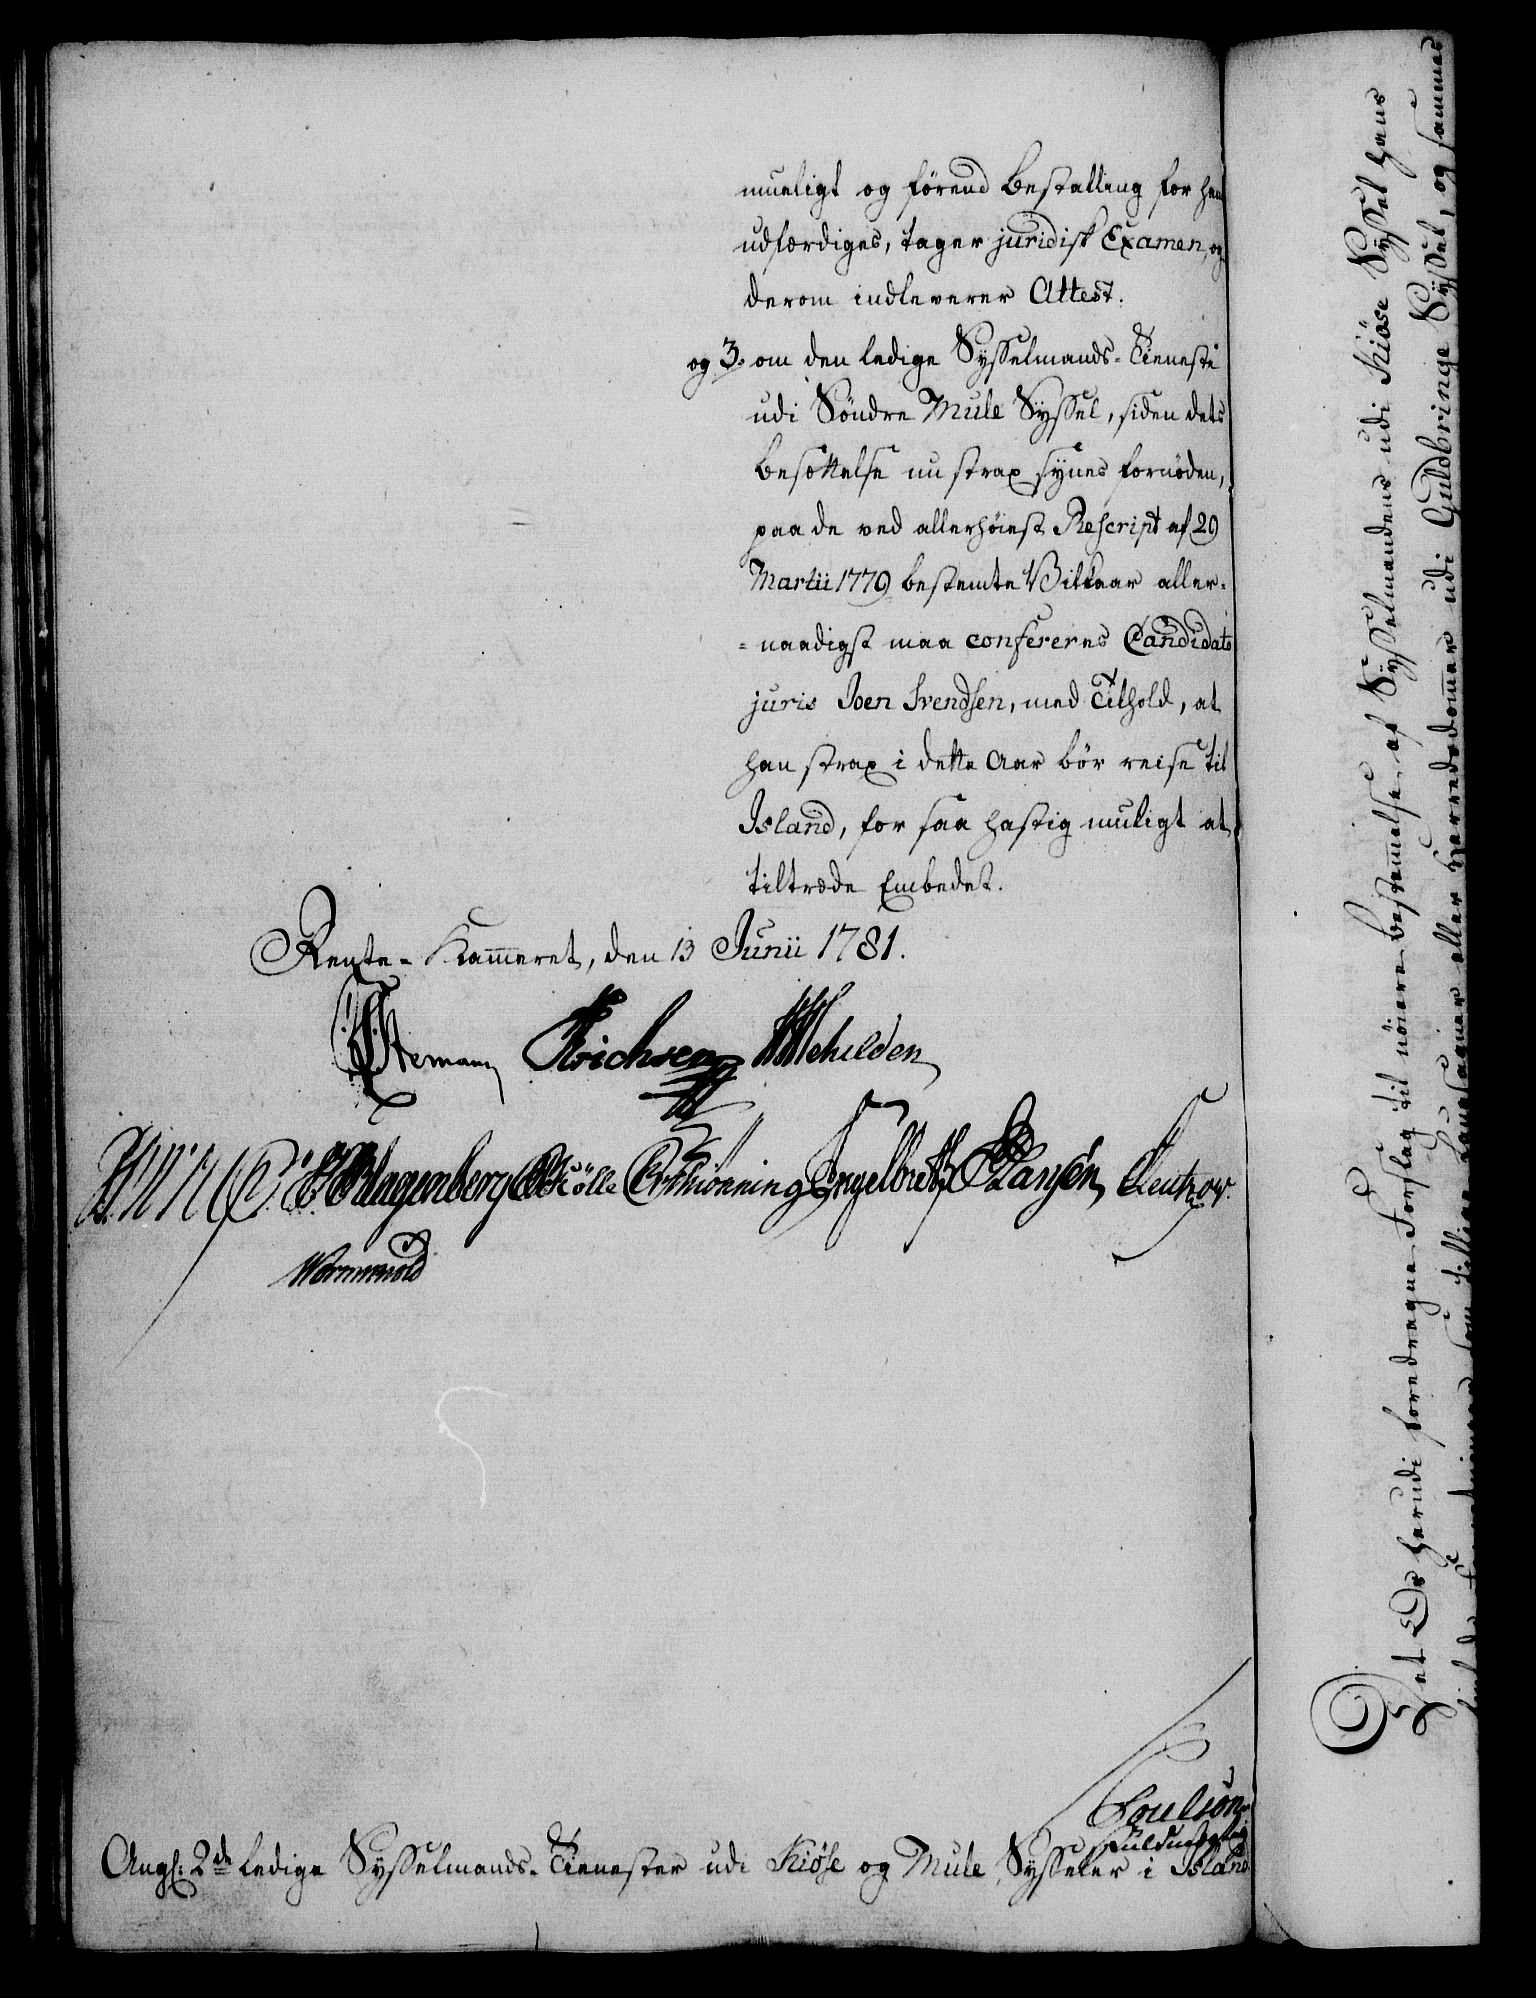 mueligt og förend Bestalling for ham
udfærdiges, tager juridisk Examen, og
derom indleverer Attest.
og 3. om den ledige Sysselmands-Tieneste
udi Söndre Mule Syssel, siden dets
Besættelse nu strax synes fornøden,
paa de ved allerhöiest Rescript af 29
Martii 1779 bestemte Vilkaar aller-
-naadigst maa confereres Candidato
juris Joen Svendsen, med Tilhold, at
han strax i dette Aar bör reise til
Island, for saa hastig muligt at
tiltræde Embedet.
Rente-Kammeret, den 13 Junii 1781.
Stemann Erichsen Mehulden
Klagenberg Schiönning Engelbreth Larsen
Wormskiold
Poulson
Ang: 2de ledige Sysselmands-Tienester udi Kiöse og Mule Sysseler i Island
Det herudi foredragne Forslag til nöiere Bestemmelse, af Sysselmandens udi Kiöse Syssel hans
udi Guldbringe Syssel, og sammes